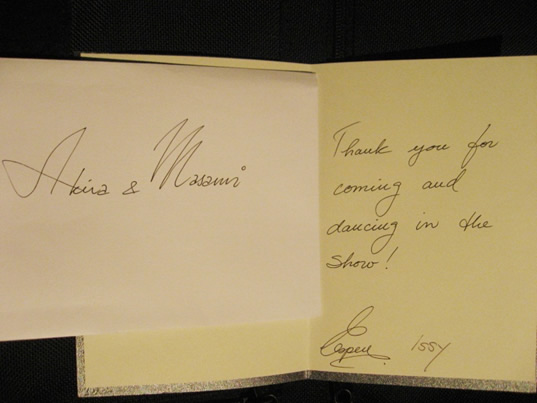 Akira & Masami
Thank you for
coming and
dancing in the
show!
Espen issy